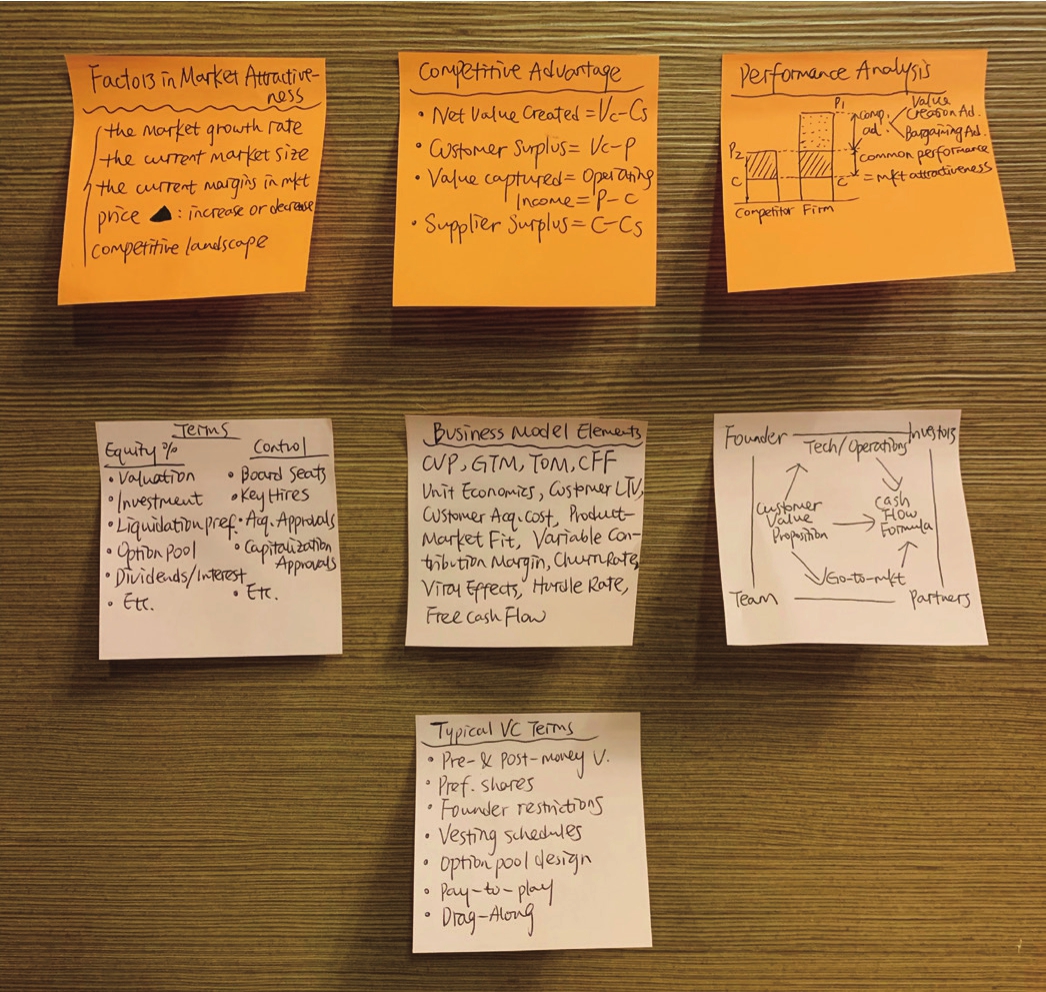 Factors in Market Attractive-
ness
the market growth rate
the current market size
the current margins in mkt
price ▲: increase or decrease
competitive landscape
Competitive Advantage
• Net Value Created = Vc-Cs
• Customer Surplus = Vc-P
• Value captured = Operating
Income = P-C
• Supplier Surplus = C-Cs
Performance Analysis
P1
comp.
ad.
Value
Creation Ad.
Bargaining Ad.
P2
common performance
= mkt attractiveness
C
C
Competitor Firm
Terms
Equity %
• Valuation
• Investment
• Liquidation pref.
• Option Pool
• Dividends/Interest
• Etc.
Control
• Board Seats
• Key Hires
• Acq. Approvals
• Capitalization
Approvals
• Etc.
Business Model Elements
CVP, GTM, TOM, CFF
Unit Economics, Customer LTV,
Customer Acq. Cost, Product-
Market Fit, Variable Con-
tribution Margin, Churn Rate,
Viral Effects, Hurdle Rate,
Free Cash Flow
Founder
Investors
Tech/Operations
Customer
Value
Proposition
Cash
Flow
Formula
Go-to-mkt
Team
Partners
Typical VC Terms
• Pre- & Post-money V.
• Pref. shares
• Founder restrictions
• Vesting schedules
• Option pool design
• Pay-to-play
• Drag-Along